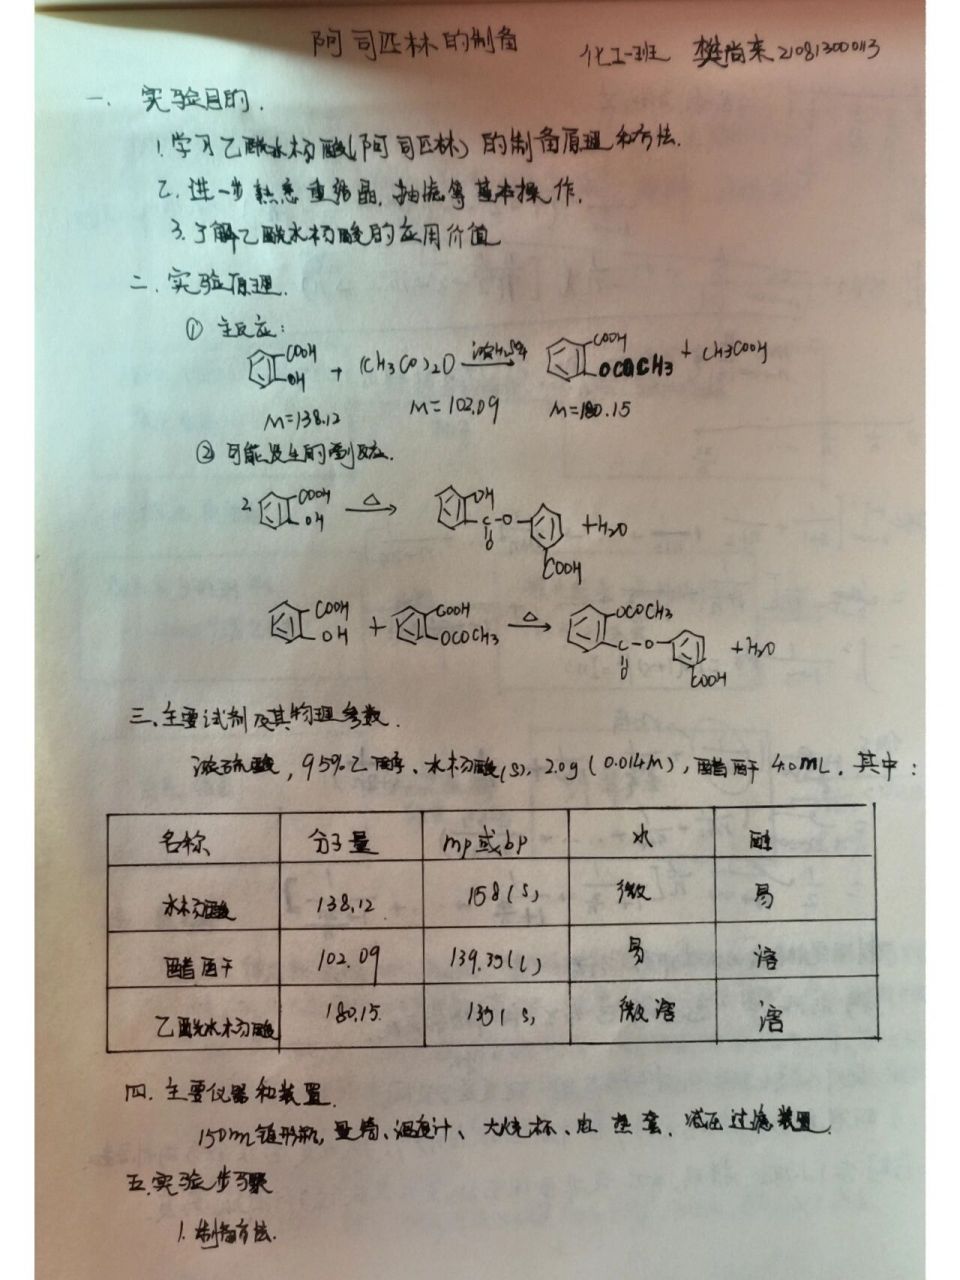 阿司匹林的制备
化工一班 樊尚来 21081300043
一. 实验目的.
1.学习乙酰水杨酸(阿司匹林)的制备原理和方法.
2.进一步熟悉重结晶,抽滤等基本操作.
3.了解乙酰水杨酸的应用价值
二.实验原理.
① 主反应:
COOH OH + (CH3CO)2O 浓H2SO4 COOH OCOCH3 + CH3COOH
M=138.12 M=102.09 M=180.15
② 可能发生的副反应.
2 COOH OH △ OH C-O- O COOH +H2O
COOH OH + COOH OCOCH3 △ OCOCH3 C-O- O COOH +H2O
三.主要试剂及其物理参数.
浓硫酸,95%乙醇、水杨酸(s)、2.0g(0.014M),醋酐4.0mL.其中:
名称 分子量 mp或bp 水 醚
水杨酸 138.12 158(s) 微 易
醋酐 102.09 139.35(l) 易 溶
乙酰水杨酸 180.15 135(s) 微溶 溶
四.主要仪器和装置.
150mL锥形瓶,量筒、温度计、大烧杯、电热套.减压过滤装置.
五.实验步骤
1.制备方法.